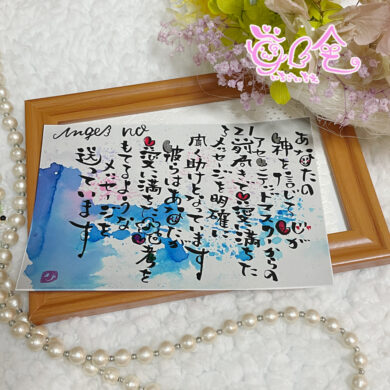 あなたの
神を信じる心が
アセンデッドマスターからの
前向きで愛に満ちた
メッセージを明確に
聞く助けとなっています
彼らはあなたが
愛に満ちた思考を
もてるような
メッセージを
送っています
Angel no